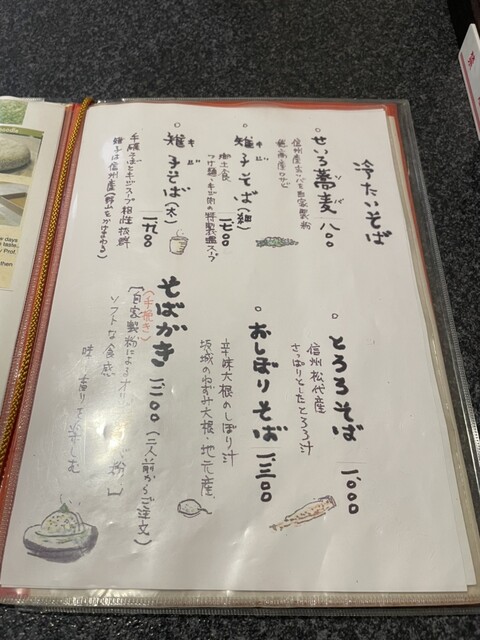 冷たいそば
せいろ蕎麦 八〇〇
ソバ
信州産玄ソバを自家製粉
雉子そば(細) 一七〇〇
キジ
郷土食
つけ麺・キジ肉の特製スープ
雉子そば(太) 一九〇〇
キジ
手碾そばとキジスープ相性抜群
雉子は信州産(野山をかけまわる)
とろろそば 一、〇〇〇
信州松代産
さっぱりとしたとろろ汁
おしぼりそば 一、三〇〇
辛味大根のしぼり汁
坂城のねずみ大根・地元産
そばがき 一、二〇〇(二人前からご注文)
(手挽き)
自家製粉によるオリ
粉
ソフトな食感
味 香りを楽しむ